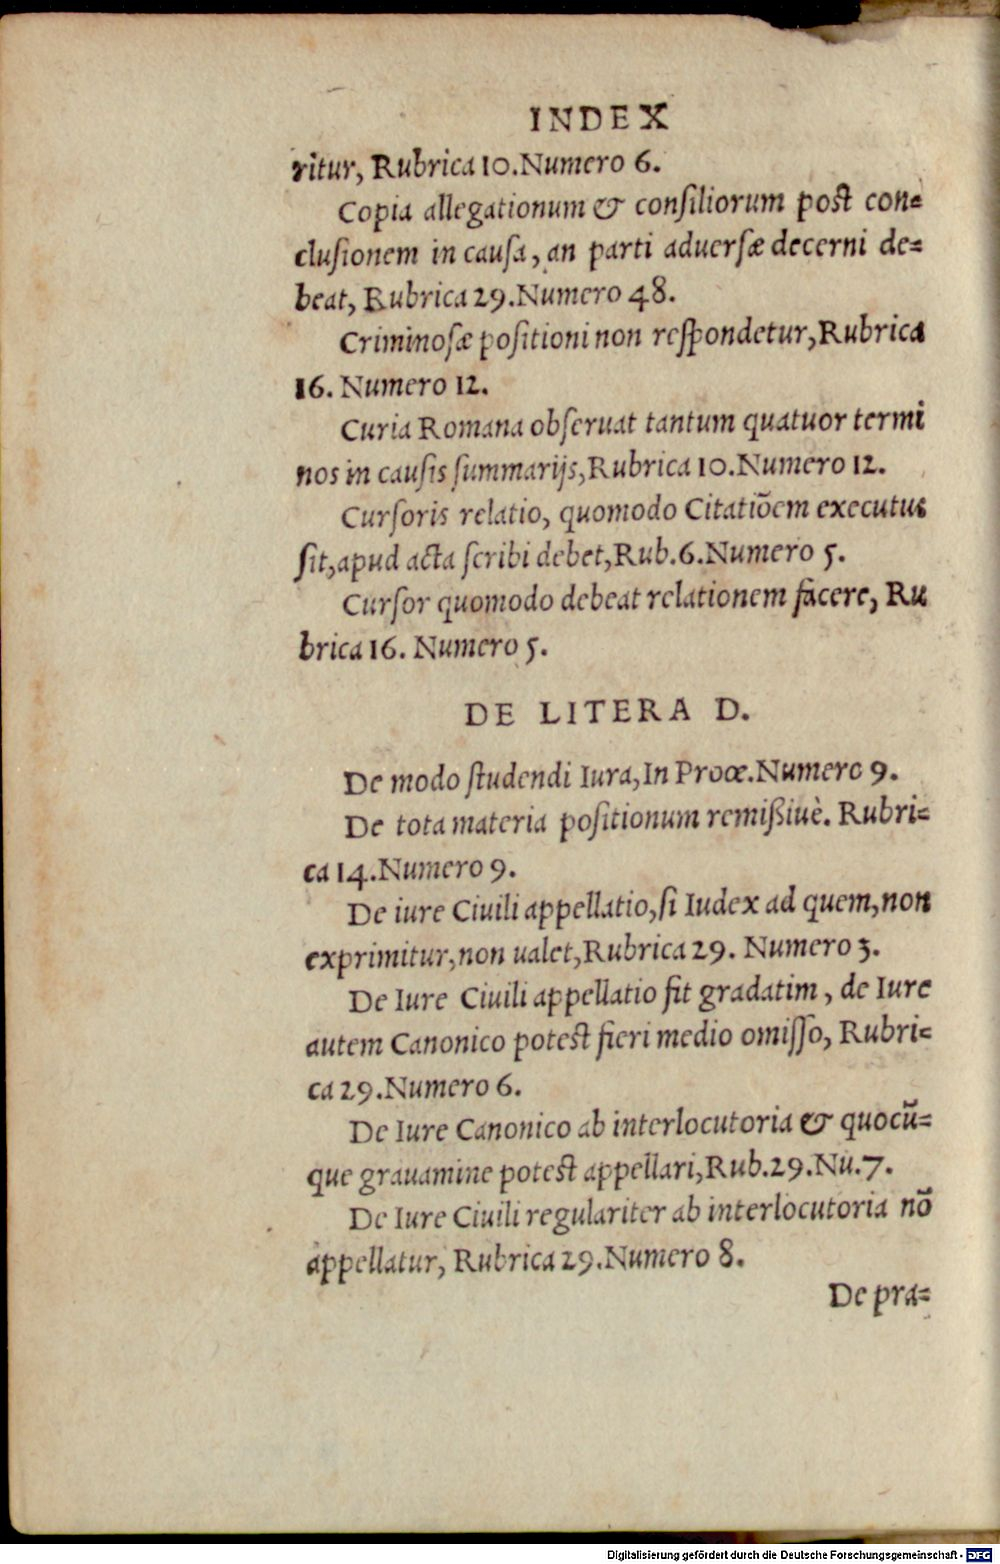 INDEX
ritur, Rubrica 10. Numero 6.
Copia allegationum & consiliorum post con=
clusionem in causa, an parti aduersæ decerni de=
beat, Rubrica 29. Numero 48.
Criminosæ positioni non respondetur, Rubrica
16. Numero 12.
Curia Romana obseruat tantum quatuor termi
nos in causis summarijs, Rubrica 10. Numero 12.
Cursoris relatio, quomodo Citatiõem executus
sit, apud acta scribi debet, Rub. 6. Numero 5.
Cursor quomodo debeat relationem facere, Ru
brica 16. Numero 5.
DE LITERA D.
De modo studendi Iura, In Proœ. Numero 9.
De tota materia positionum remißiuè. Rubri=
ca 14. Numero 9.
De iure Ciuili appellatio, si Iudex ad quem, non
exprimitur, non ualet, Rubrica 29. Numero 3.
De Iure Ciuili appellatio fit gradatim, de Iure
autem Canonico potest fieri medio omisso, Rubri=
ca 29. Numero 6.
De Iure Canonico ab interlocutoria & quocũ=
que grauamine potest appellari, Rub. 29. Nu. 7.
De Iure Ciuili regulariter ab interlocutoria nõ
appellatur, Rubrica 29. Numero 8.
De pra=
Digitalisierung gefördert durch die Deutsche Forschungsgemeinschaft - DFG